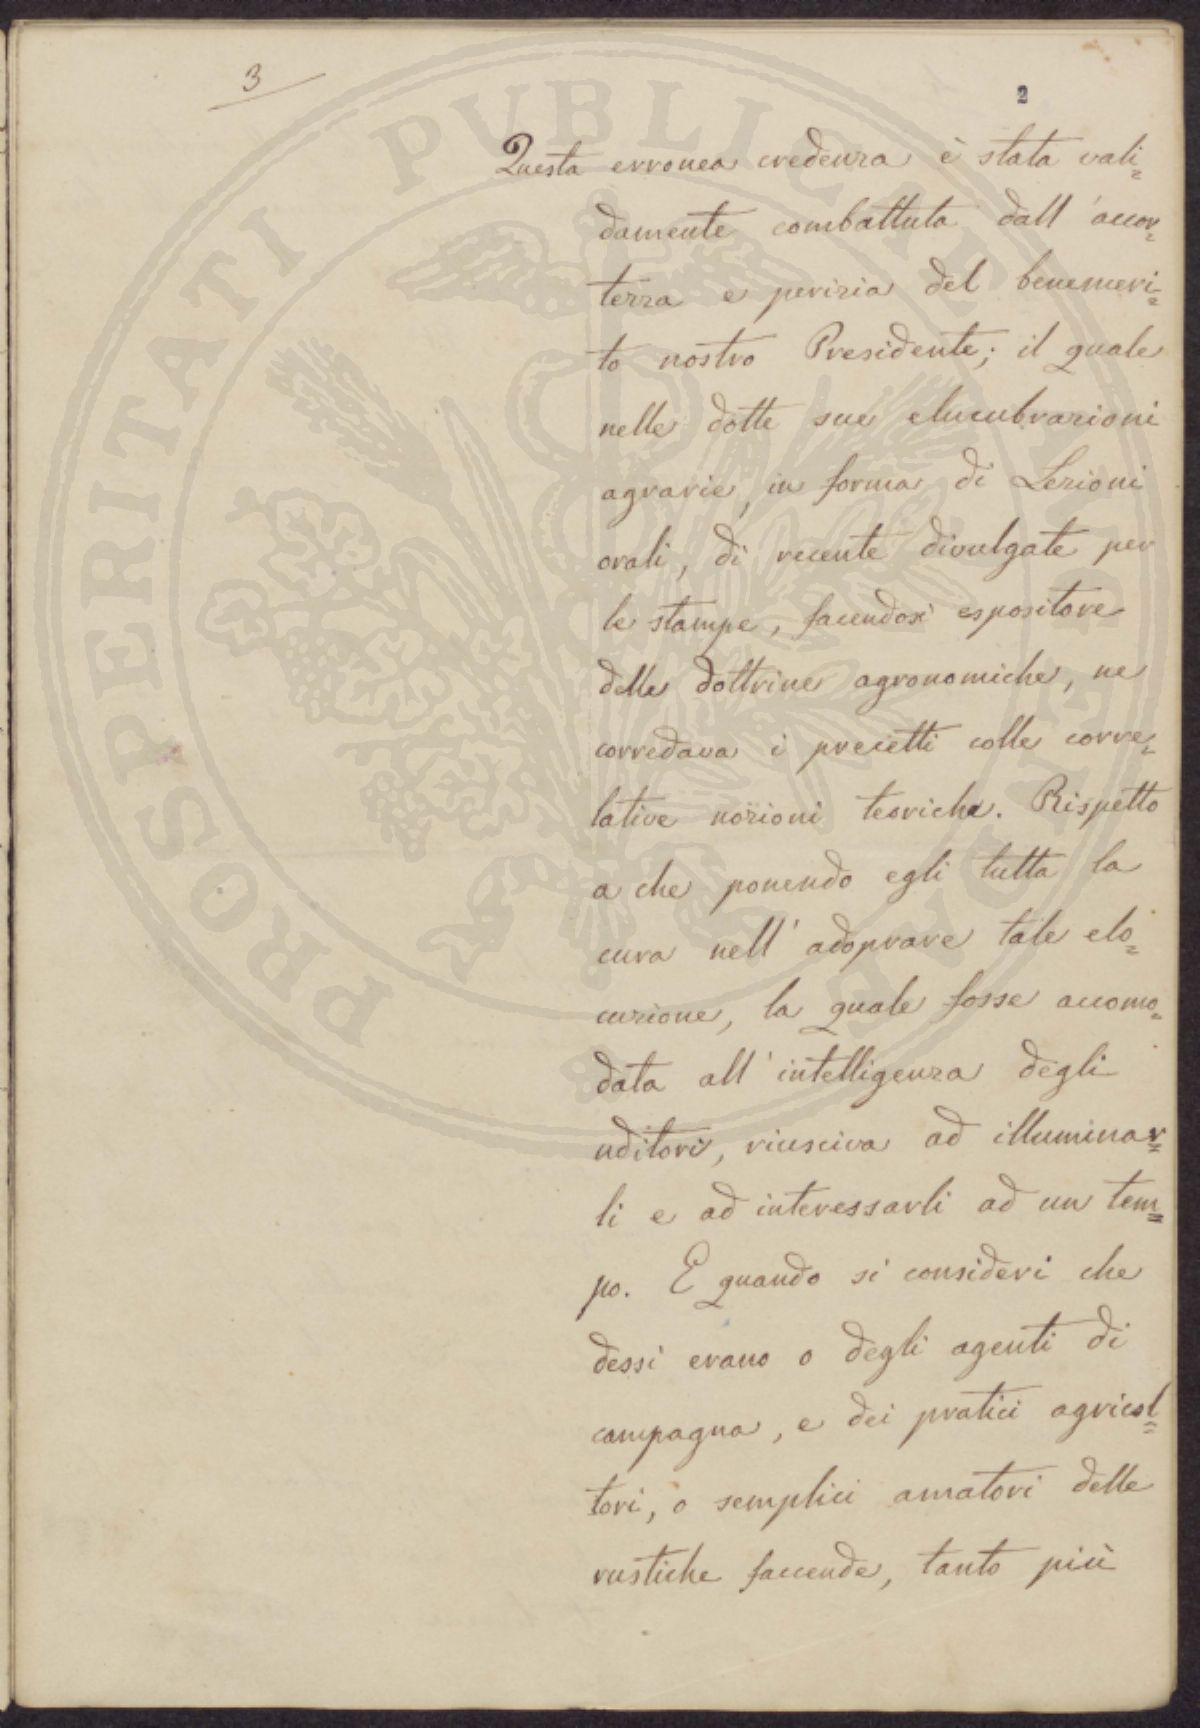 3
2
Questa erronea credenza è stata vali=
damente combattuta dall'accor=
tezza e perizia del benemeri=
to nostro Presidente; il quale
nelle dotte sue elucubrazioni
agrarie, in forma di Lezioni
orali, di recente divulgate per
le stampe, facendosi espositore
delle dottrine agronomiche, ne
corredava i precetti colle corre=
lative nozioni teoriche. Rispetto
a che ponendo egli tutta la
cura nell'adoprare tale elo=
cuzione, la quale fosse accomo=
data all'intelligenza degli
uditori, riusciva ad illuminar=
li e ad interessarli ad un tem=
po. E quando si consideri che
dessi erano o degli agenti di
campagna, e dei pratici agricol=
tori, o semplici amatori delle
rustiche faccende, tanto più
PROSPERITATI PUBLICAE